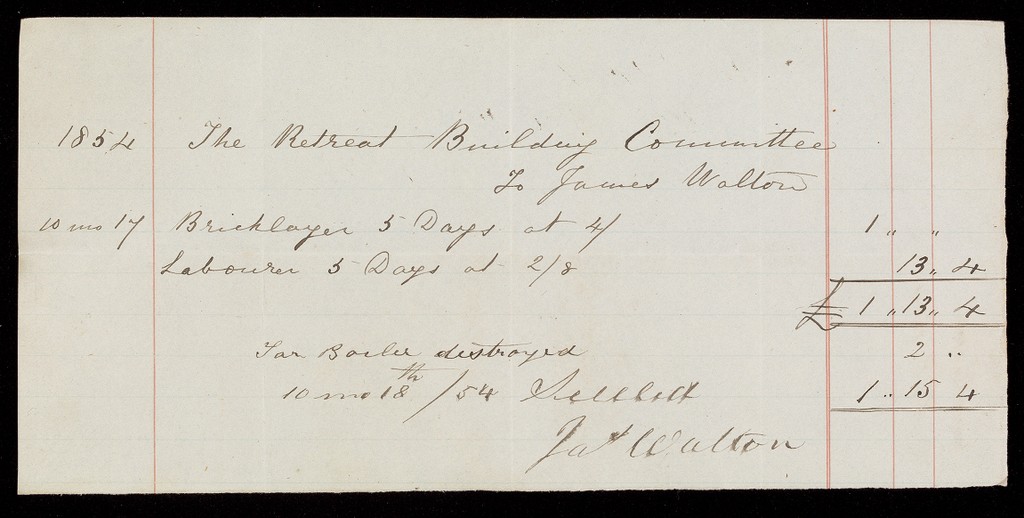 1854 The Retreat Building Committee
To James Walton
10 mo 17 Bricklayer 5 Days at 4/ 1 " "
Labourer 5 Days at 2/8 13 " 4
£ 1 " 13 " 4
Tar Boiler destroyed 2 "
10 mo 18th /54 Settled 1 " 15 4
Jas Walton